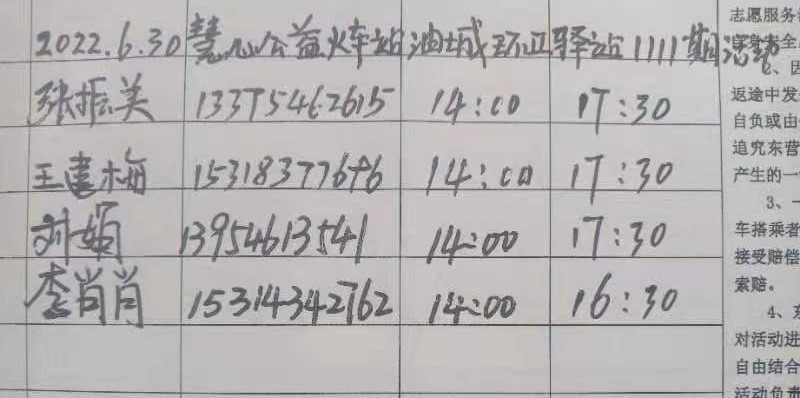 2022.6.30 慧心公益火车站油城环卫驿站1111期活动
张振美 13375462615 14:00 17:30
王建梅 15318377696 14:00 17:30
刘娟 13954613541 14:00 17:30
李肖肖 15314342762 14:00 16:30
志愿服务
安全
2、因
返途中发
自负或由
追究东营
产生的一
3、一
车搭乘者
接受赔偿
索赔。
4、东
对活动进
自由结合
活动负责